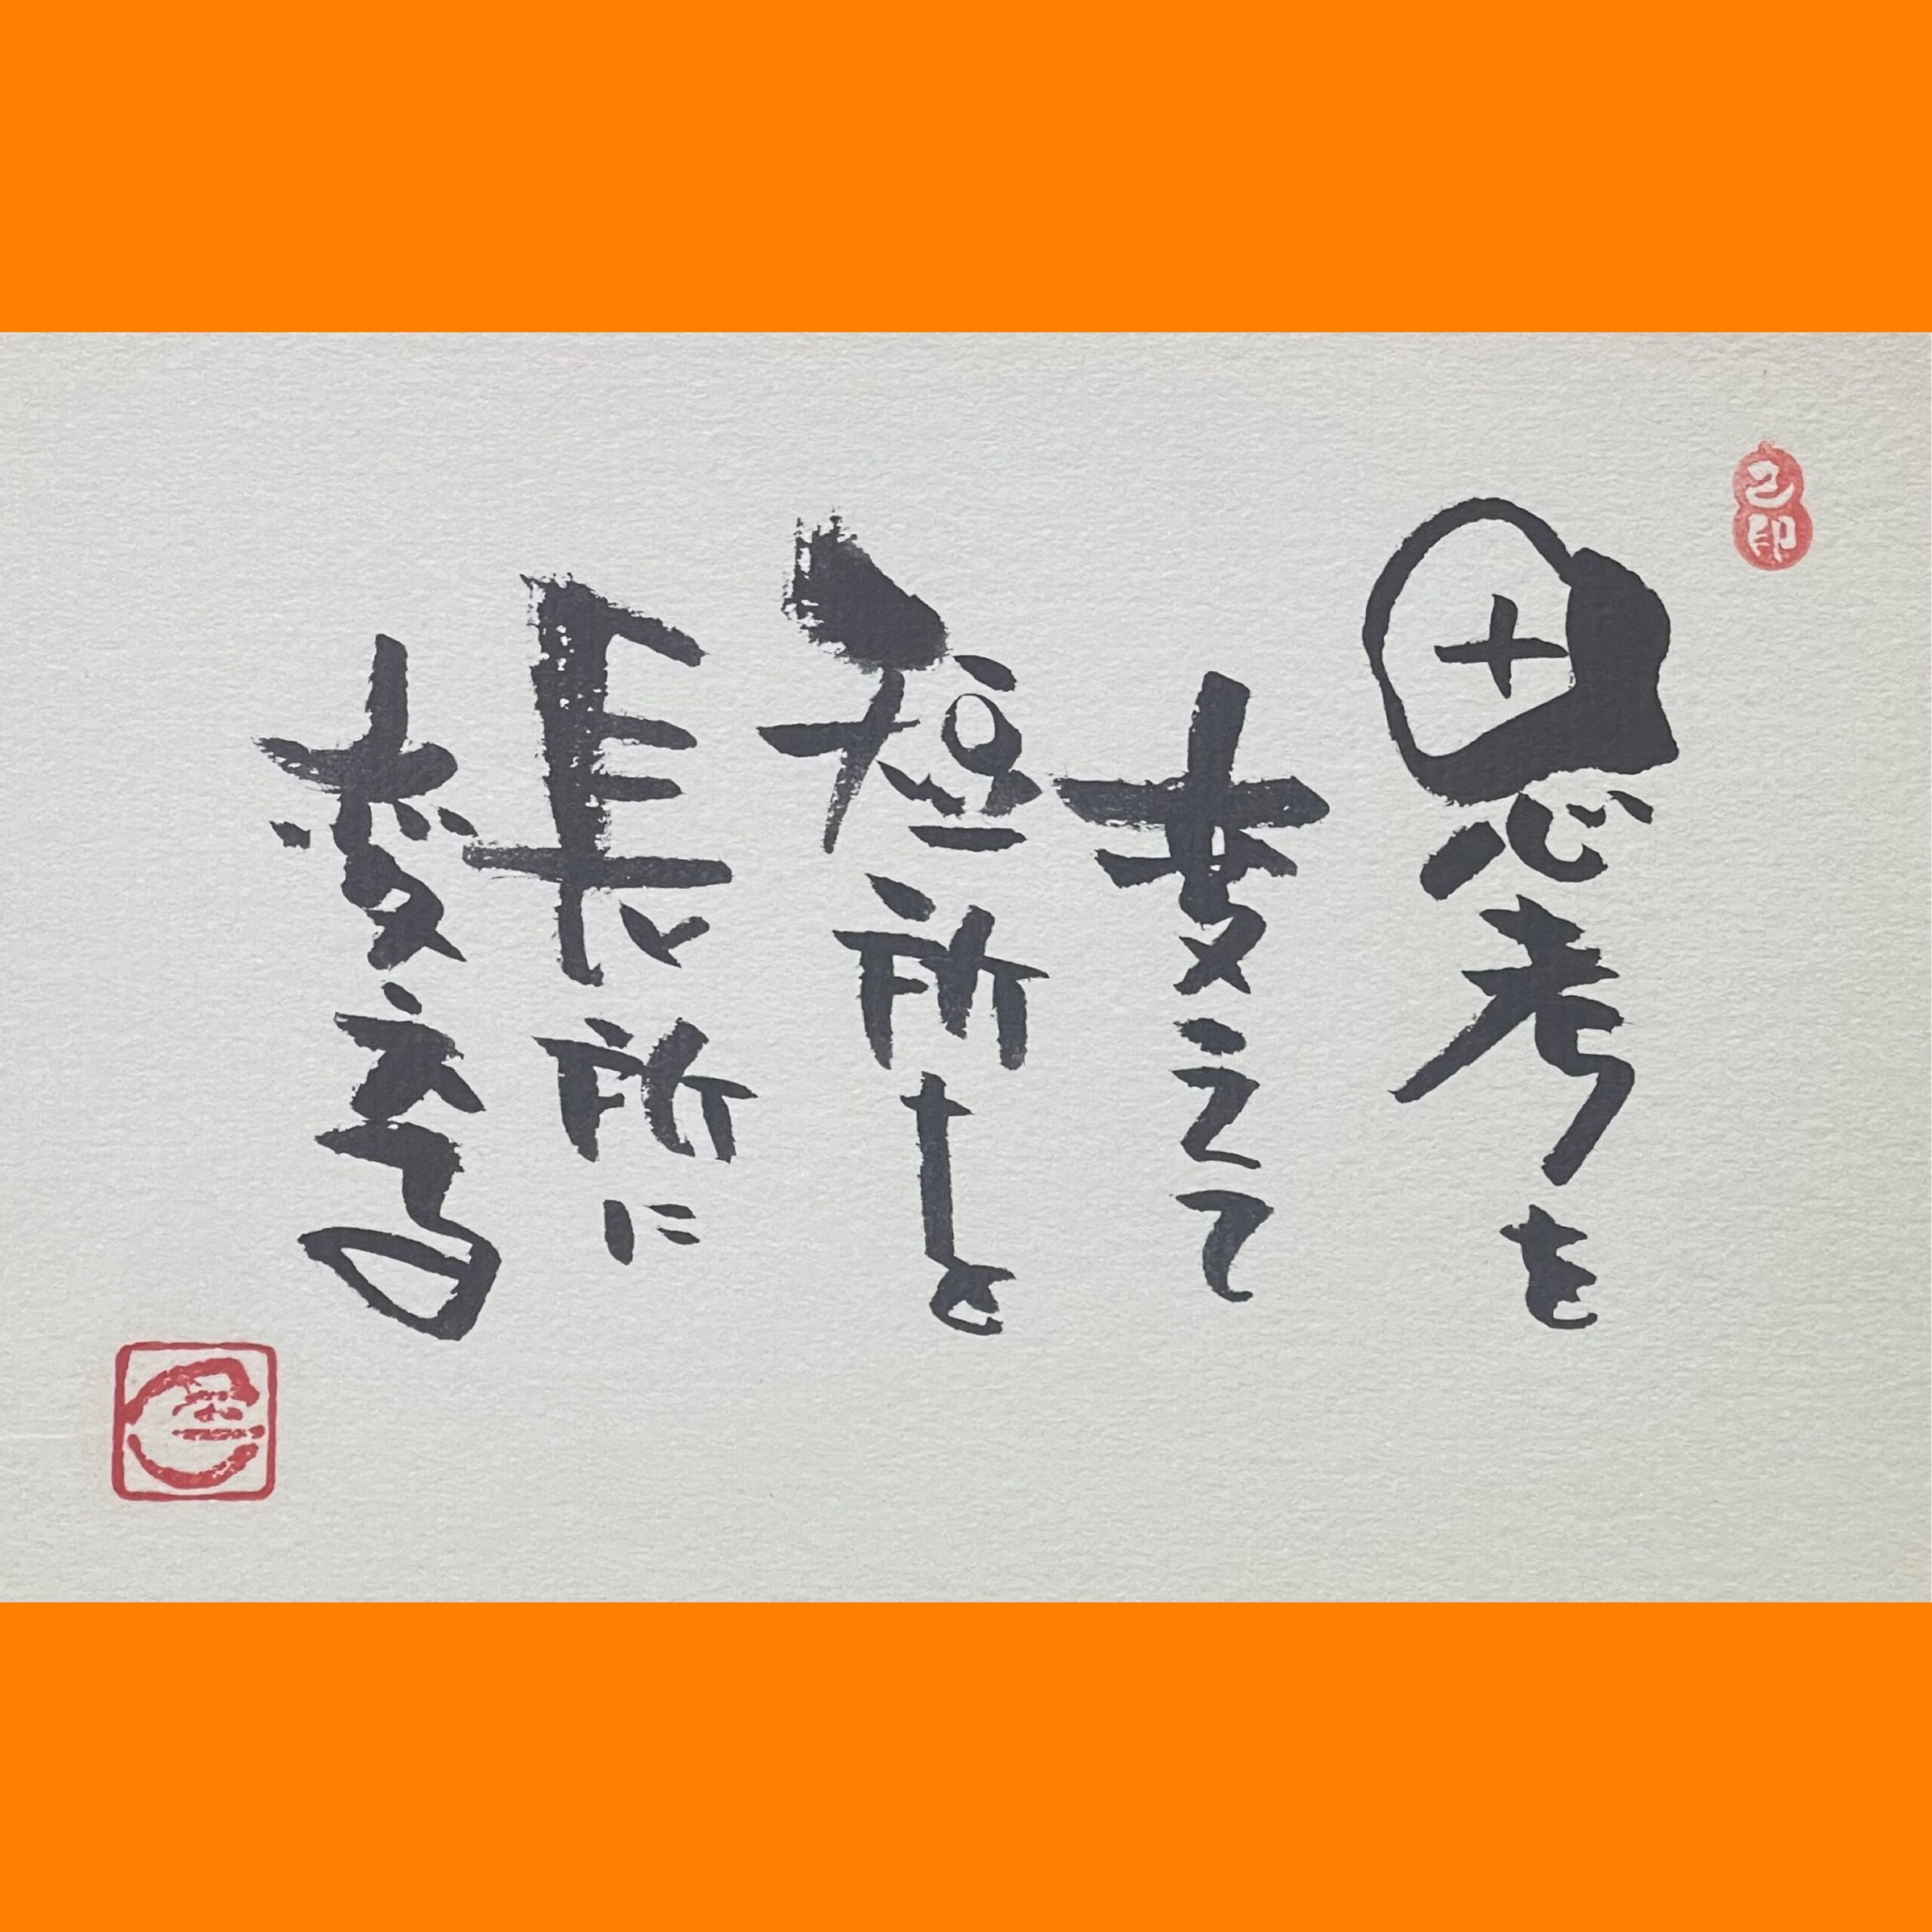 思考を
変えて
短所を
長所に
変える
己印